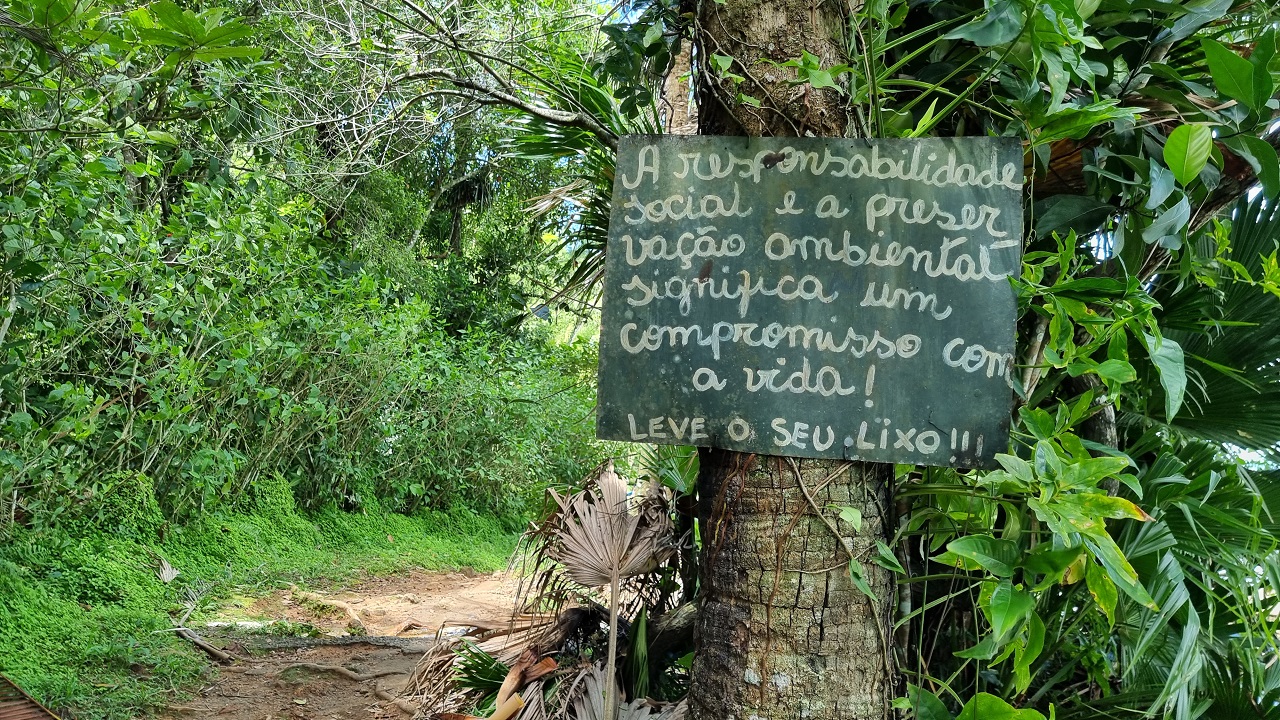 A responsabilidade
social e a preser_
vação ambiental
significa um
compromisso com
a vida!
LEVE O SEU LIXO!!!